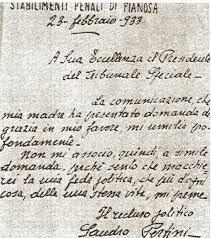 STABILIMENTI PENALI DI PIANOSA
23-febbraio-933
A Sua Eccellenza il Presidente
del Tribunale Speciale-
La comunicazione, che
mia madre ha presentato domanda di
grazia in mio favore, mi umilia pro-
fondamente-
Non mi associo, quindi, a simile
domanda, perché sento che macchie-
rei la mia fede politica, che più d'ogni
cosa, della mia stessa vita, mi preme.
Il recluso politico
Sandro Pertini